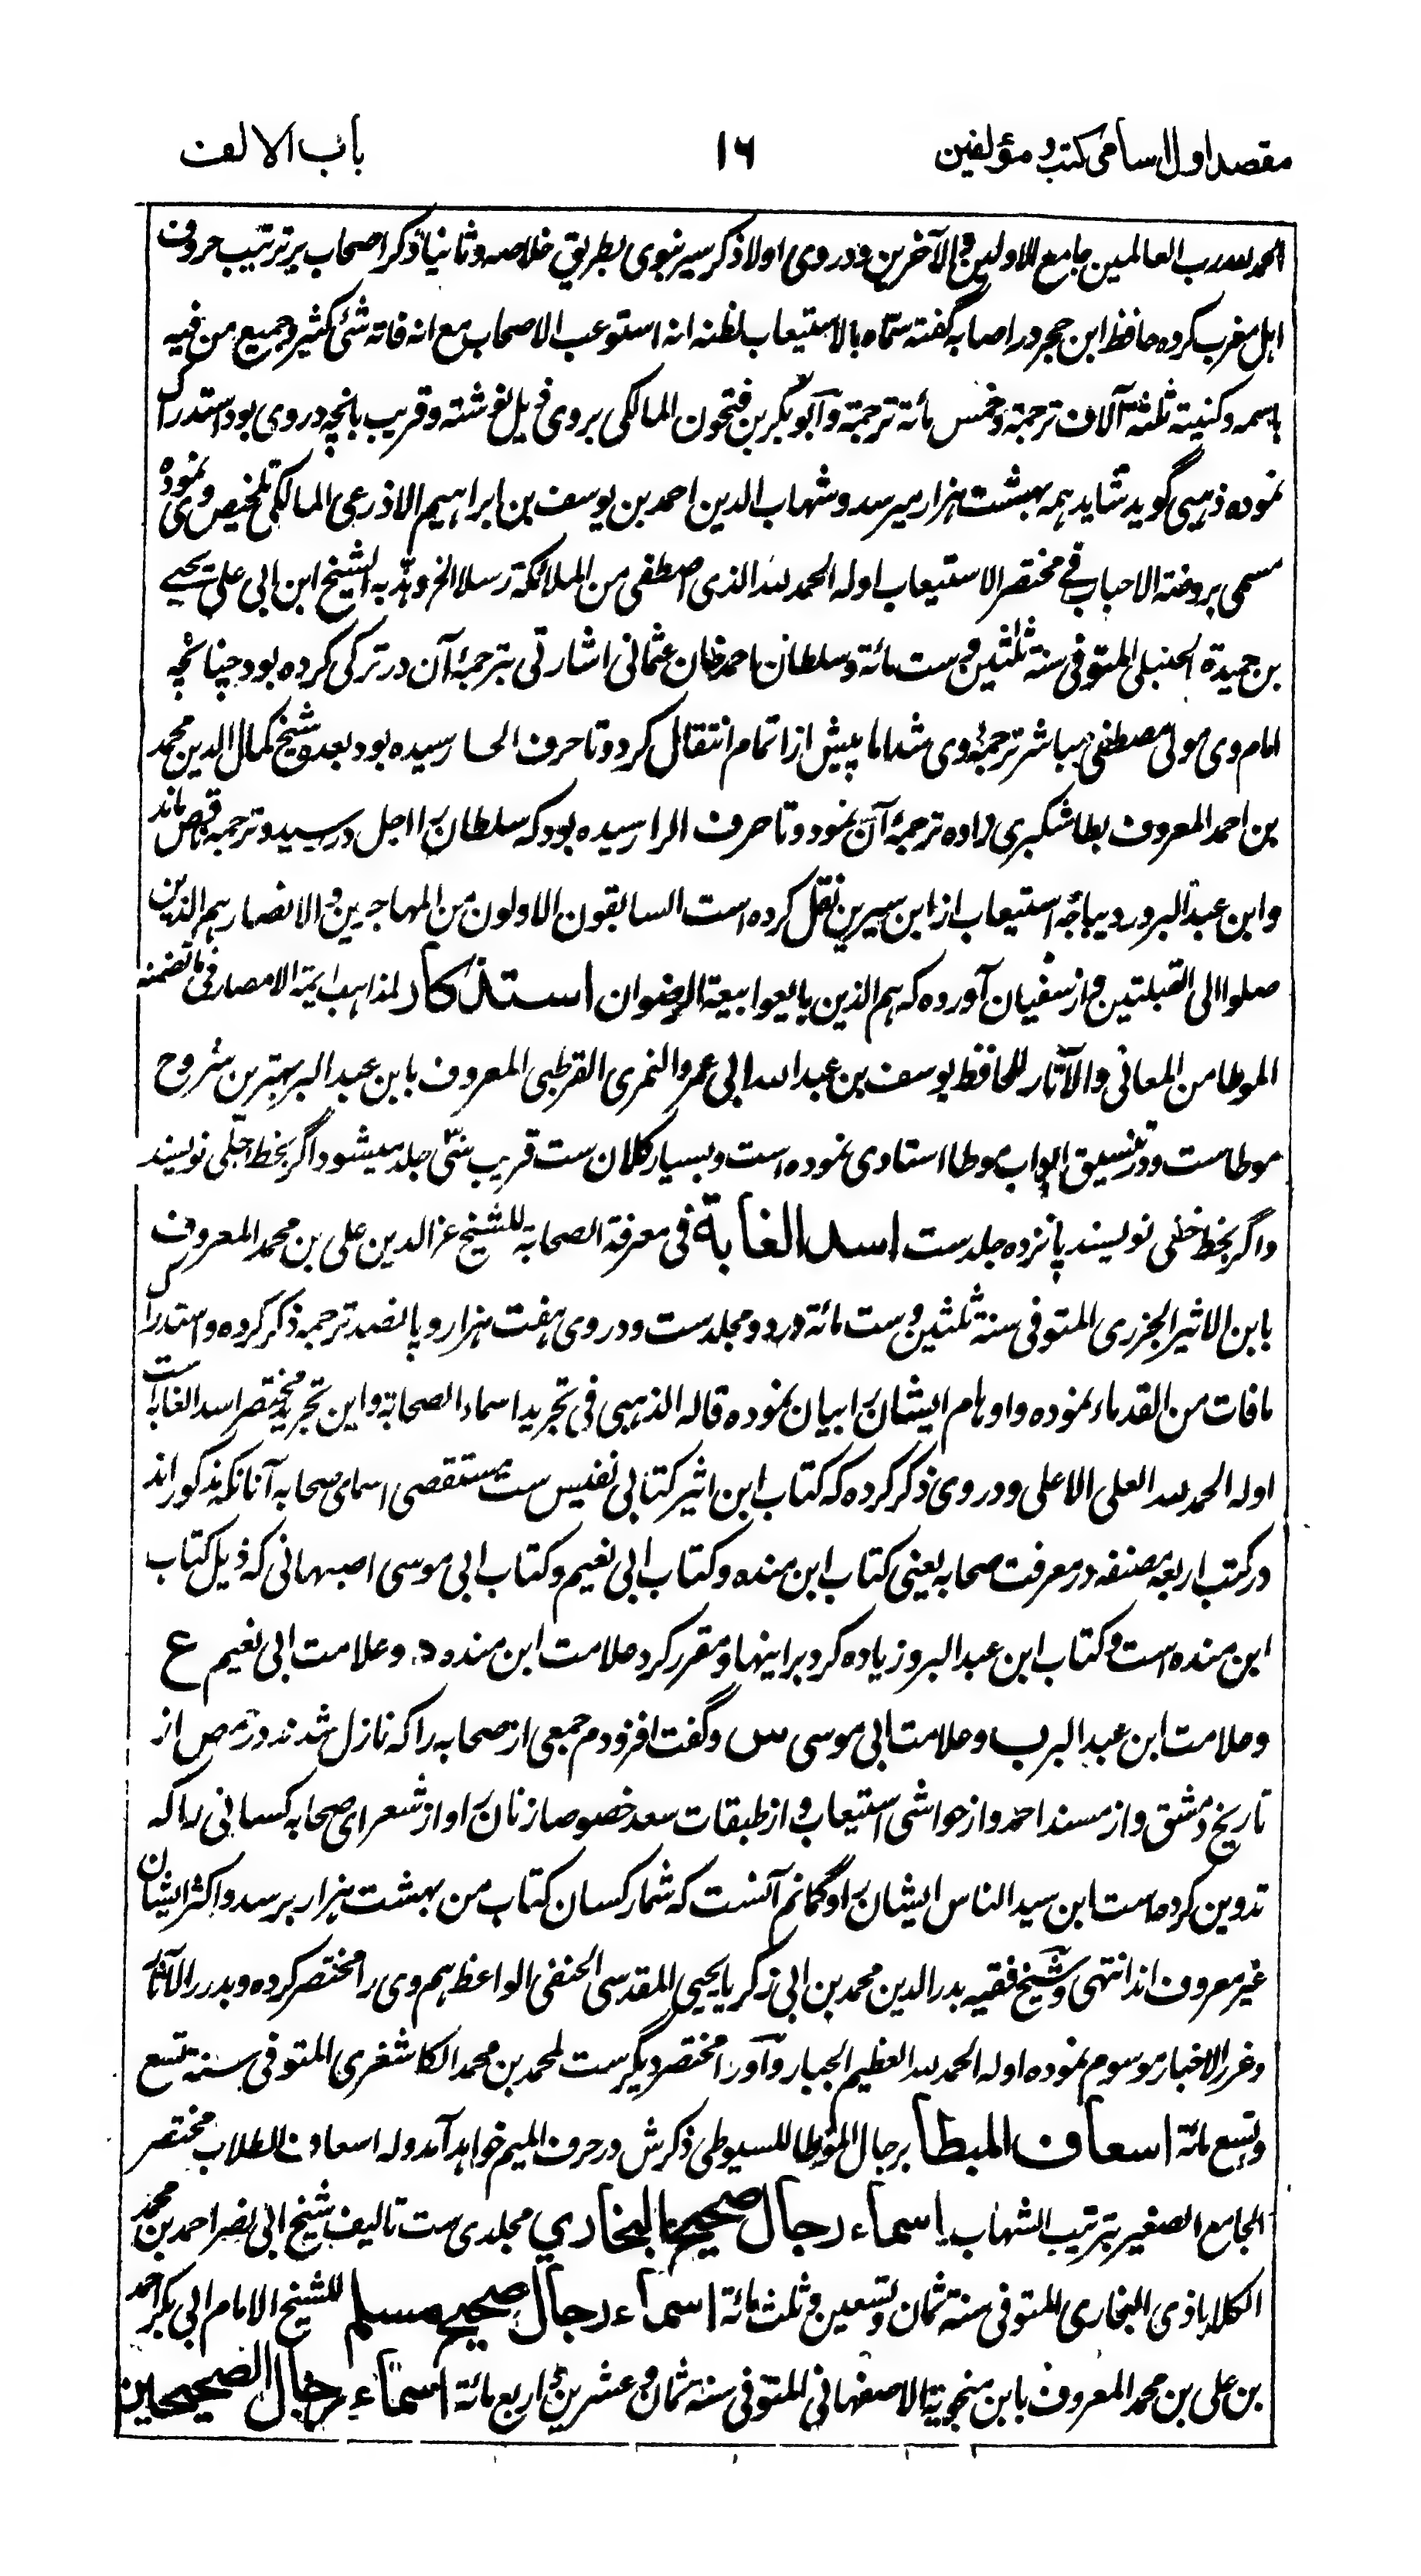 مقصد اول اسامی کتب و مؤلفین ۱۶ باب الالف
الحمد لله رب العالمین جامع الاولین و الآخرین و در وی اولا ذکر سیر نبوی بطریق خلاصه و ثانیا ذکر اصحاب بر ترتیب حروف
اهل مغرب کرده حافظ ابن حجر در اصابه گفته سماه بالاستیعاب لظنه انه استوعب الاصحاب مع انه فاته شئ کثیر و جمیع من فیه
باسمه و کنیته ثلثة آلاف ترجمة و خمس مائة ترجمة و ابو بکر بن فتحون المالکی بر وی ذیل نوشته و قریب بانچه در وی بود استدراک
نموده ذهبی گوید شاید همه بهشت هزار میرسد و شهاب الدین احمد بن یوسف بن ابراهیم الاذرعی المالکی تلخیص وی نموده
مسمی بروضة الاحباب فی مختصر الاستیعاب اوله الحمد لله الذی اصطفی من الملائکة رسلا الخ و هذبه الشیخ ابن ابی علی یحیی
بن حمیدة الحنبلی المتوفی سنة ثلثین و ست مائة و سلطان احمد خان عثمانی اشارتی بترجمهٔ آن در ترکی کرده بود چنانچه
امام وی مولی مصطفی مباشر ترجمهٔ وی شد اما پیش از اتمام انتقال کرد و تا حرف الحا رسیده بود بعده شیخ کمال الدین محمد
بن احمد المعروف بطاشکبری زاده ترجمهٔ آن نمود و تا حرف الرا رسیده بود که سلطان را اجل در رسید و ترجمه ناقص ماند
و ابن عبد البر در دیباجهٔ استیعاب از ابن سیرین نقل کرده است السابقون الاولون من المهاجرین و الانصار هم الذین
صلوا الی القبلتین و از سفیان آورده که هم الذین بایعوا بیعة الرضوان استذکار لمذاهب ایمة الامصار فی ما تضمنه
الموطا من المعانی و الآثار للحافظ یوسف بن عبد الله ابی عمرو النمری القرطبی المعروف بابن عبد البر بهترین شروح
موطاست و در تنسیق ابواب موطا استادی نموده است و بسیار کلان ست قریب سی جلد میشود اگر بخط جلی نویسند
و اگر بخط خفی نویسند پانزده جلد ست اسد الغابة فی معرفة الصحابة للشیخ عز الدین علی بن محمد المعروف
بابن الاثیر الجزری المتوفی سنة ثلثین و ست مائة در دو مجلد ست و در وی هفت هزار و پانصد ترجمه ذکر کرده و استدراک
ما فات من القدماء نموده و اوهام ایشان را بیان نموده قاله الذهبی فی تجرید اسماء الصحابة و این تجرید مختصر اسد الغابة است
اوله الحمد لله العلی الاعلی و در وی ذکر کرده که کتاب ابن اثیر کتابی نفیس ست مستقصی اسمای صحابه آنانکه مذکور اند
در کتب اربعه مصنفه در معرفت صحابه یعنی کتاب ابن منده و کتاب ابی نعیم و کتاب ابی موسی اصبهانی که ذیل کتاب
ابن منده است و کتاب ابن عبد البر و زیاده کرد بر اینها و مقرر کرد علامت ابن منده د و علامت ابی نعیم ع
و علامت ابن عبد البر ب و علامت ابی موسی س و گفت افزودم جمعی از صحابه را که نازل شدند در حمص از
تاریخ دمشق و از مسند احمد و از حواشی استیعاب و از طبقات سعد خصوصا زنان را و از شعرای صحابه کسانی را که
تدوین کرده است ابن سید الناس ایشان را و گمانم آنست که شمار کسان کتاب من بهشت هزار برسد و اکثر ایشان
غیر معروف اند انتهی و شیخ فقیه بدر الدین محمد بن ابی زکریا یحیی المقدسی الحنفی الواعظ هم وی را مختصر کرده و بدرر الآثار
و غرر الاخبار موسوم نموده اوله الحمد لله العظیم الجبار و او را مختصر دیگر ست لمحمد بن محمد الکاشغری المتوفی سنة تسع
و تسع مائة اسعاف المبطا برجال الموطا للسیوطی ذکرش در حرف المیم خواهد آمد و له اسعاف الطلاب مختصر
الجامع الصغیر بترتیب الشهاب اسماء رجال صحیح البخاری مجلدی ست تالیف شیخ ابی نصر احمد بن محمد
الکلاباذی البخاری المتوفی سنة ثمان و تسعین و ثلث مائة اسماء رجال صحیح مسلم للشیخ الامام ابی بکر احمد
بن علی بن محمد المعروف بابن منجویة الاصفهانی المتوفی سنة ثمان و عشرین و اربع مائة اسماء رجال الصحیحین